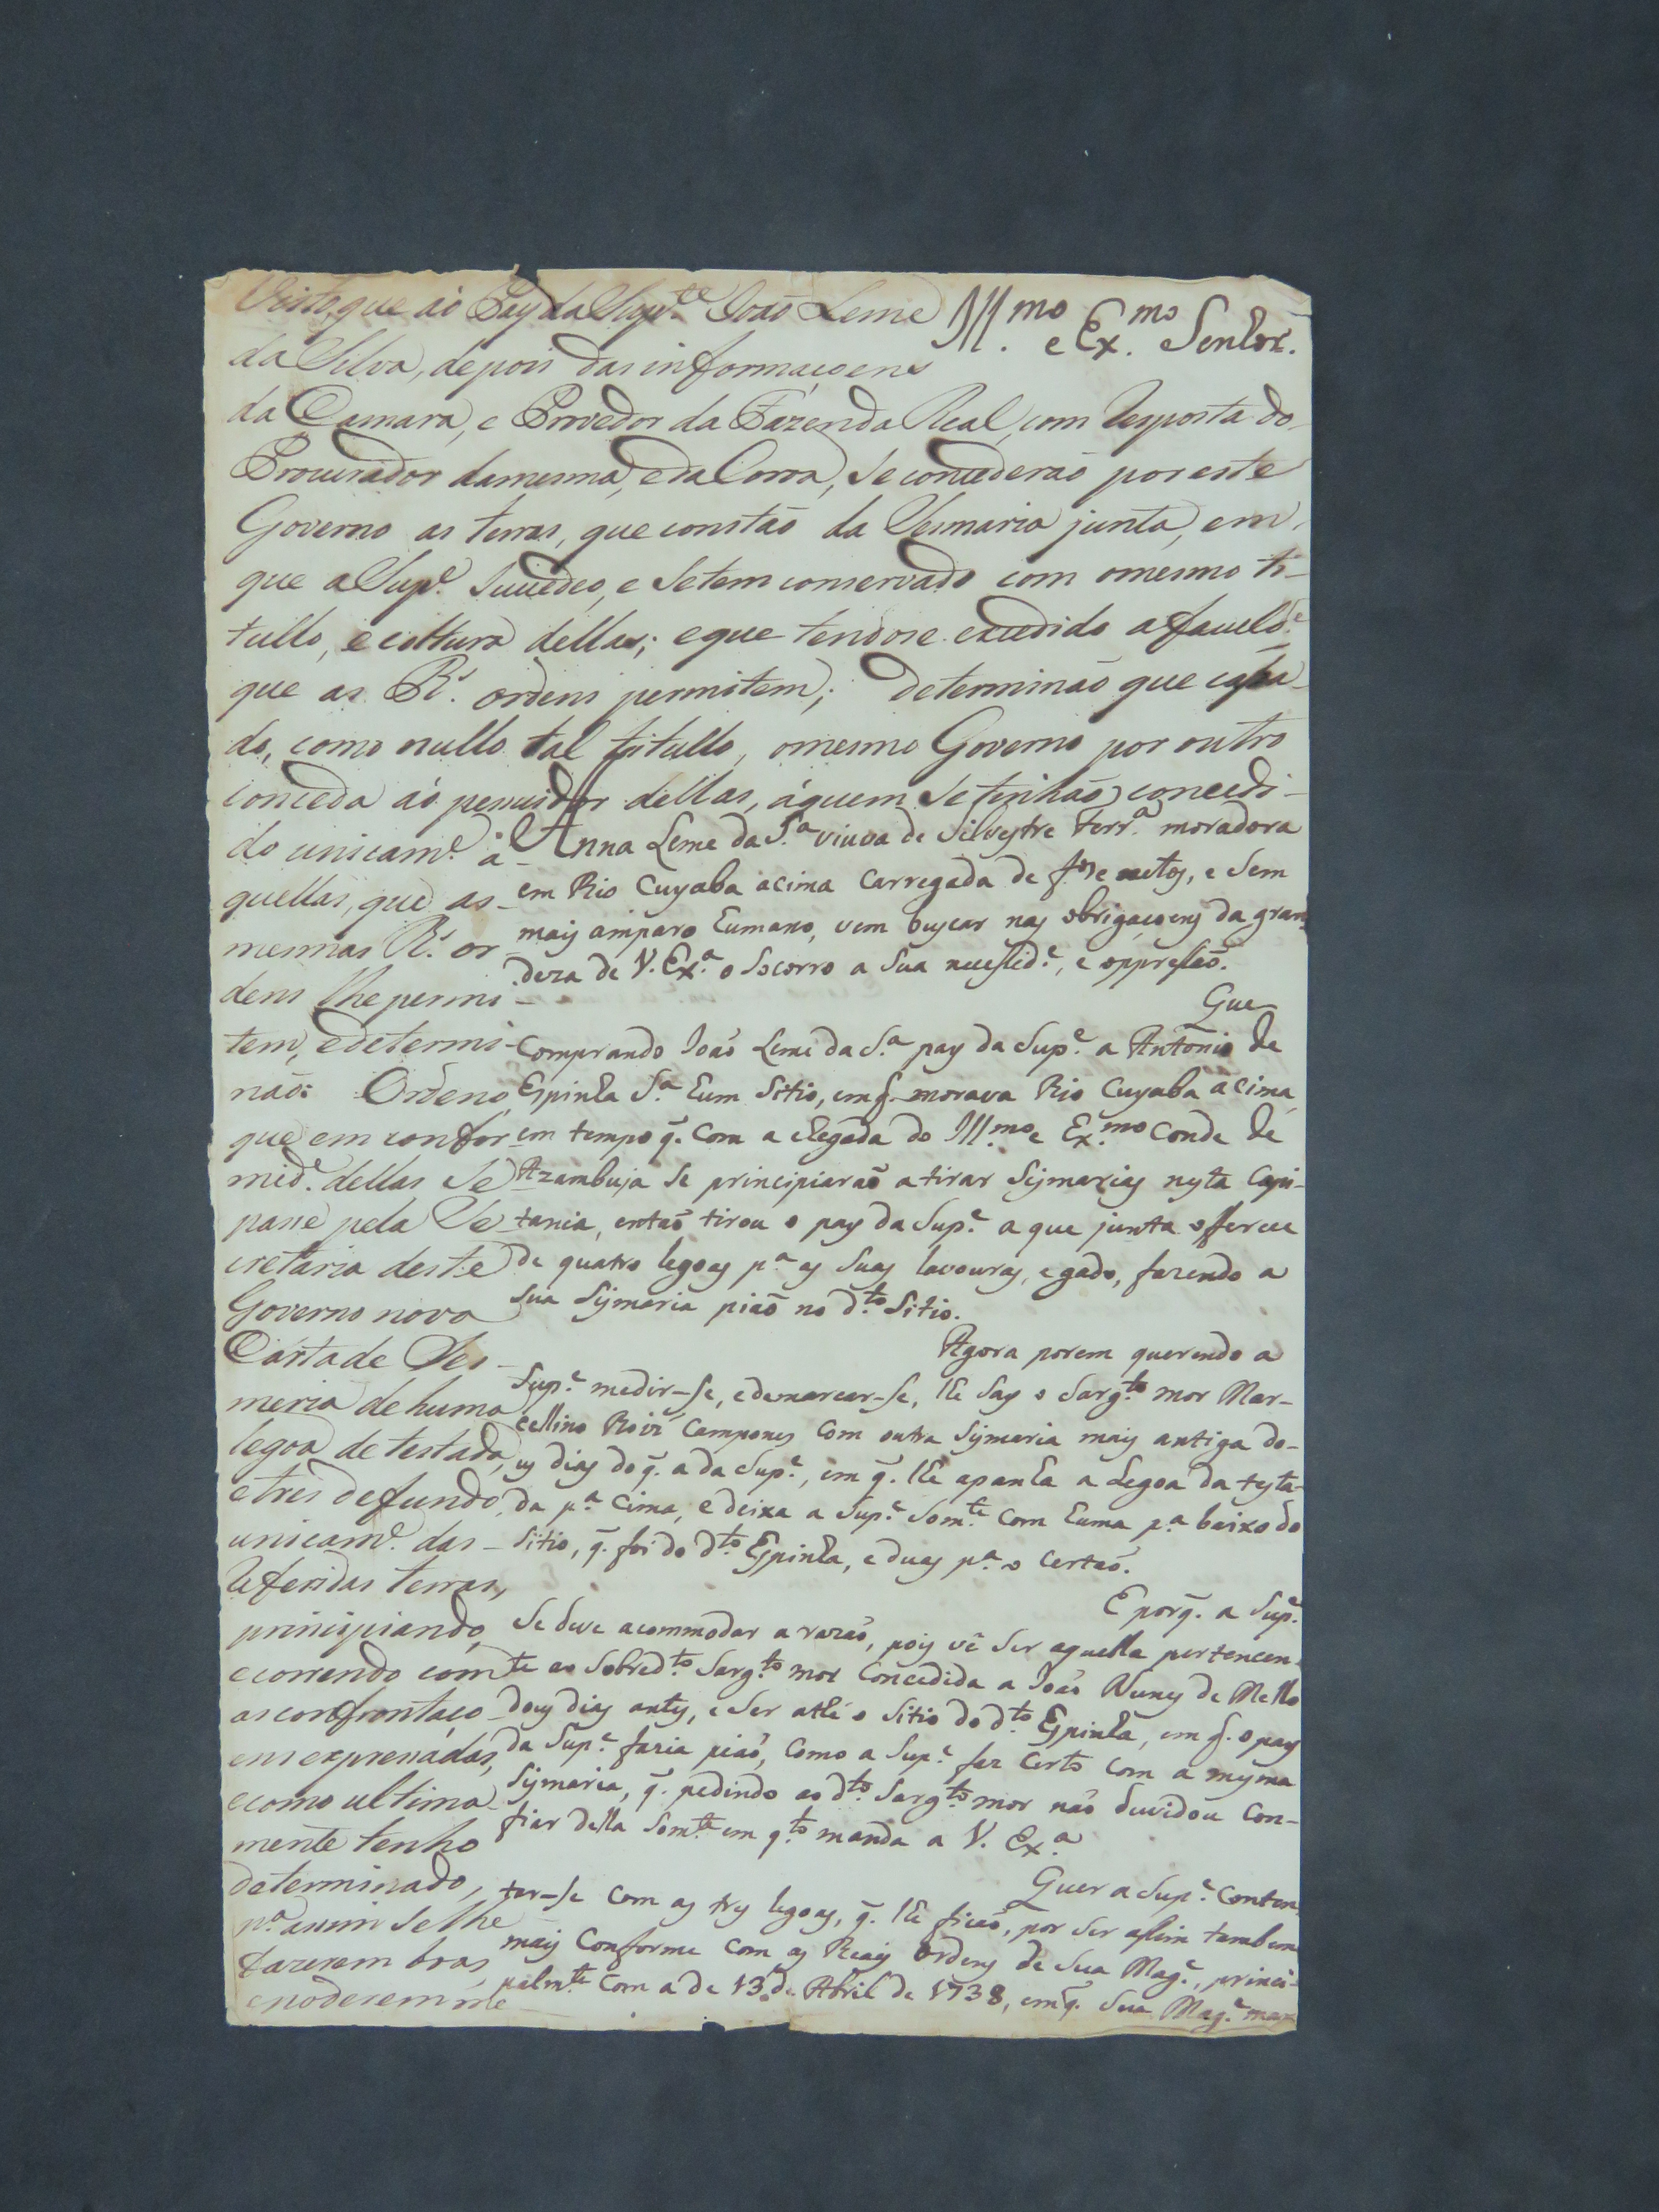 Visto, que ao Pay da Supp.te Joaõ Leme
da Silva, depois das informaçoens
da Camara, e Provedor da Fazenda Real, com Resposta do
Procurador da mesma, e da Coroa, se concederaõ por este
Governo as terras, que constaõ da Sesmaria junta, em
que a Sup.e Succedeo, e se tem conservado com o mesmo ti-
tullo, e cultura dellas; e que tendose excedido a faculd.e
que as R.s ordens permitem; determinaõ que cassa-
do, como nullo tal titullo, o mesmo Governo por outro
conceda ao possuidor dellas, áquem se tinhaõ concedi-
do unicam.e a-
quellas, que as
mesmas R.s or
dens lhe permi-
tem, e determi-
naõ: Ordeno,
que em confor
mid.e dellas se
passe pela Se
cretaria deste
Governo nova
Carta de Ses-
maria de huma
legoa de testada,
e tres de fundo,
unicam.e das-
Referidas terras,
principiando,
e correndo com
as confrontaço-
ens expressadas,
e como ultima-
mente tenho
determinado,
p.a assim se lhe
fazerem boas,
e poderem me-
Ill.mo e Ex.mo Senhor.
Anna Leme da S.a viuva de Silvestre Ferr.a moradora
em Rio Cuyaba acima carregada de f.os e netos, e sem
mais amparo humano, vem buscar nas obrigaçoens da gran-
deza de V. Ex.a o socorro a sua necessid.e, e oppressaõ.
Que
Comprando Joaõ Leme da S.a pay da Sup.e a Antonio de
Espinha S.a hum sitio, em q. morava Rio Cuyaba acima,
em tempo q. com a chegada do Ill.mo e Ex.mo Conde de
Azambuja se principiaraõ a tirar Sismarias nesta Capi-
tania, entaõ tirou o pay da Sup.e a que junta offerece
de quatro legoas p.a as suas lavouras, e gado, fazendo a
sua Sismaria piaõ no d.to Sitio.
Agora porem querendo a
Sup.e medir-se, e demarcar-se, lhe say o Sarg.to mor Mar-
cellino Roiz Campones com outra Sismaria mais antiga do-
us dias do q. a da Sup.e, em q. lhe apanha a legoa da testa-
da p.a cima, e deixa a Sup.e som.te com huma p.a baixo do
sitio, q. foi do d.to Espinha, e duas p.a o certaõ.
E porq. a Sup.e
se deve acommodar a razaõ, pois vê ser aquella pertencen-
te ao sobred.to Sarg.to mor concedida a Joaõ Nunes de Mello
dous dias antes, e ser athe o sitio do d.to Espinha, em q. o pay
da Sup.e fazia piaõ, como a Sup.e faz certo com a mesma
Sismaria, q. pedindo ao d.to Sarg.to mor naõ duvidou con-
fiar della som.te em q.to manda a V. Ex.a
Quer a Sup.e conten-
tar-se com as tres legoas, q. lhe ficaõ, por ser assim tambem
mais conforme com as Reais Ordens de Sua Mag.e, princi-
palm.te com a de 13 de Abril de 1738, em q. Sua Mag.e man